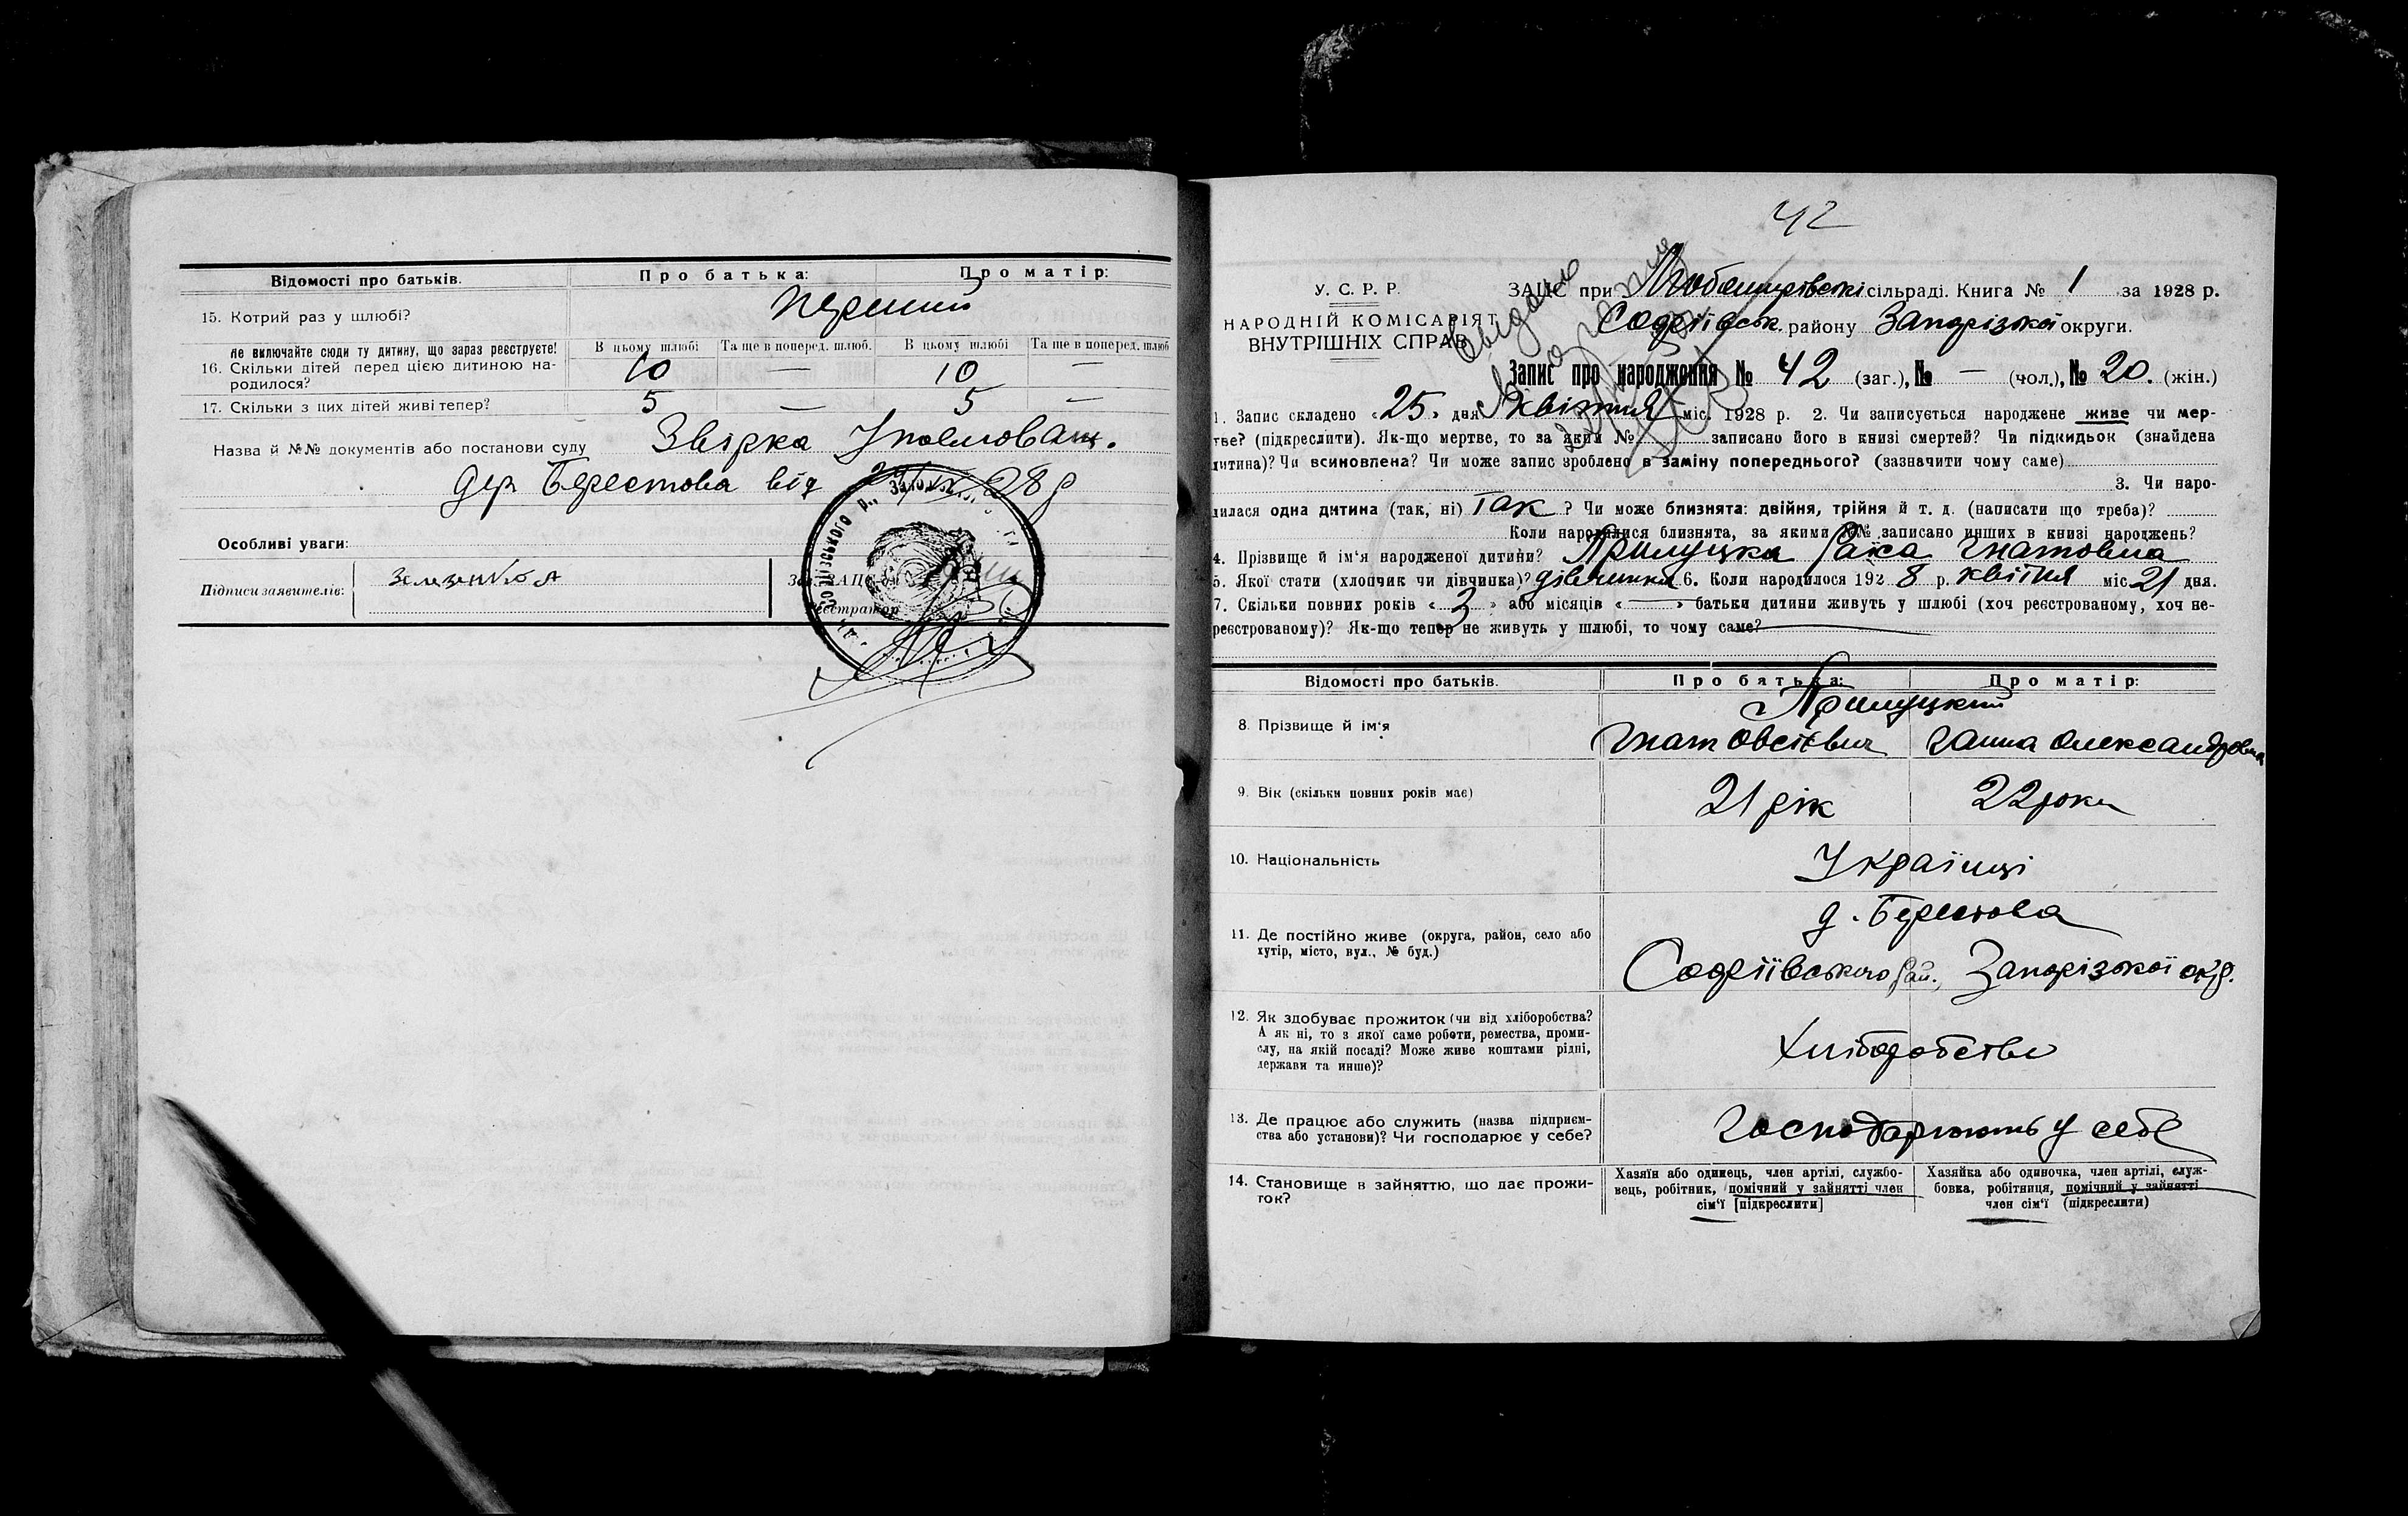 Відомості про батьків. Про батька: Про матір:
15. Котрий раз у шлюбі? перший
Не включайте сюди ту дитину, що зараз реєструєте! В цьому шлюбі Та ще в поперед. шлюб. В цьому шлюбі Та ще в поперед. шлюб
16. Скільки дітей перед цією дитиною на- 10 — 10 —
родилося?
17. Скільки з цих дітей живі тепер? 5 — 5 —
Назва й №№ документів або постанови суду Звірка Уповноващ.
дер Берестова від 28 р
Особливі уваги:
Підписи заявителів:
Реєстратор
42
У. С. Р. Р.
НАРОДНІЙ КОМІСАРІЯТ
ВНУТРІШНІХ СПРАВ
ЗАПИС при сільраді. Книга № 1 за 1928 р.
району Запорізької округи.
Запис про народження № 42 (заг.), № — (чол.), № 20. (жін.)
1. Запис складено «25» дня квітня міс. 1928 р. 2. Чи записується народжене живе чи мер-
тве? (підкреслити). Як-що мертве, то за яким № записано його в книзі смертей? Чи підкидьок (знайдена
дитина)? Чи всиновлена? Чи може запис зроблено в заміну попереднього? (зазначити чому саме)
3. Чи наро-
дилася одна дитина (так, ні) так? Чи може близнята: двійня, трійня й т. д. (написати що треба)?
Коли народилися близнята, за якими №№ записано инших в книзі народжень?
4. Прізвище й ім'я народженої дитини? Прилуцка Раїса Гнатовна
5. Якої стати (хлопчик чи дівчинка)? дівчинка 6. Коли народилося 1928 р. квітня міс 21 дня.
7. Скільки повних років «3» або місяців «—» батьки дитини живуть у шлюбі (хоч реєстрованому, хоч не-
реєстрованому)? Як-що тепер не живуть у шлюбі, то чому саме?
Відомості про батьків. Про батька: Про матір:
Прилуцкий
8. Прізвище й ім'я Гнат Овсієвич Ганна Олександровна
9. Вік (скільки повних років має) 21 рік 22 роки
10. Національність Українці
д. Берестова
11. Де постійно живе (округа, район, село або
хутір, місто, вул., № буд.)
Софіївського рай., Запорізької окр.
12. Як здобуває прожиток (чи від хліборобства?
А як ні, то з якої саме роботи, ремества, проми-
слу, на якій посаді? Може живе коштами рідні,
держави та инше)?
Хліборобство
13. Де працює або служить (назва підприєм-
ства або установи)? Чи господарює у себе? Господарюють у себе
14. Становище в зайняттю, що дає прожи-
ток?
Хазяїн або одинець, член артілі, службо-
вець, робітник, помічний у зайнятті член
сім'ї [підкреслити]
Хазяйка або одиночка, член артілі, служ-
бовка, робітниця, помічний у зайнятті
член сім'ї (підкреслити)